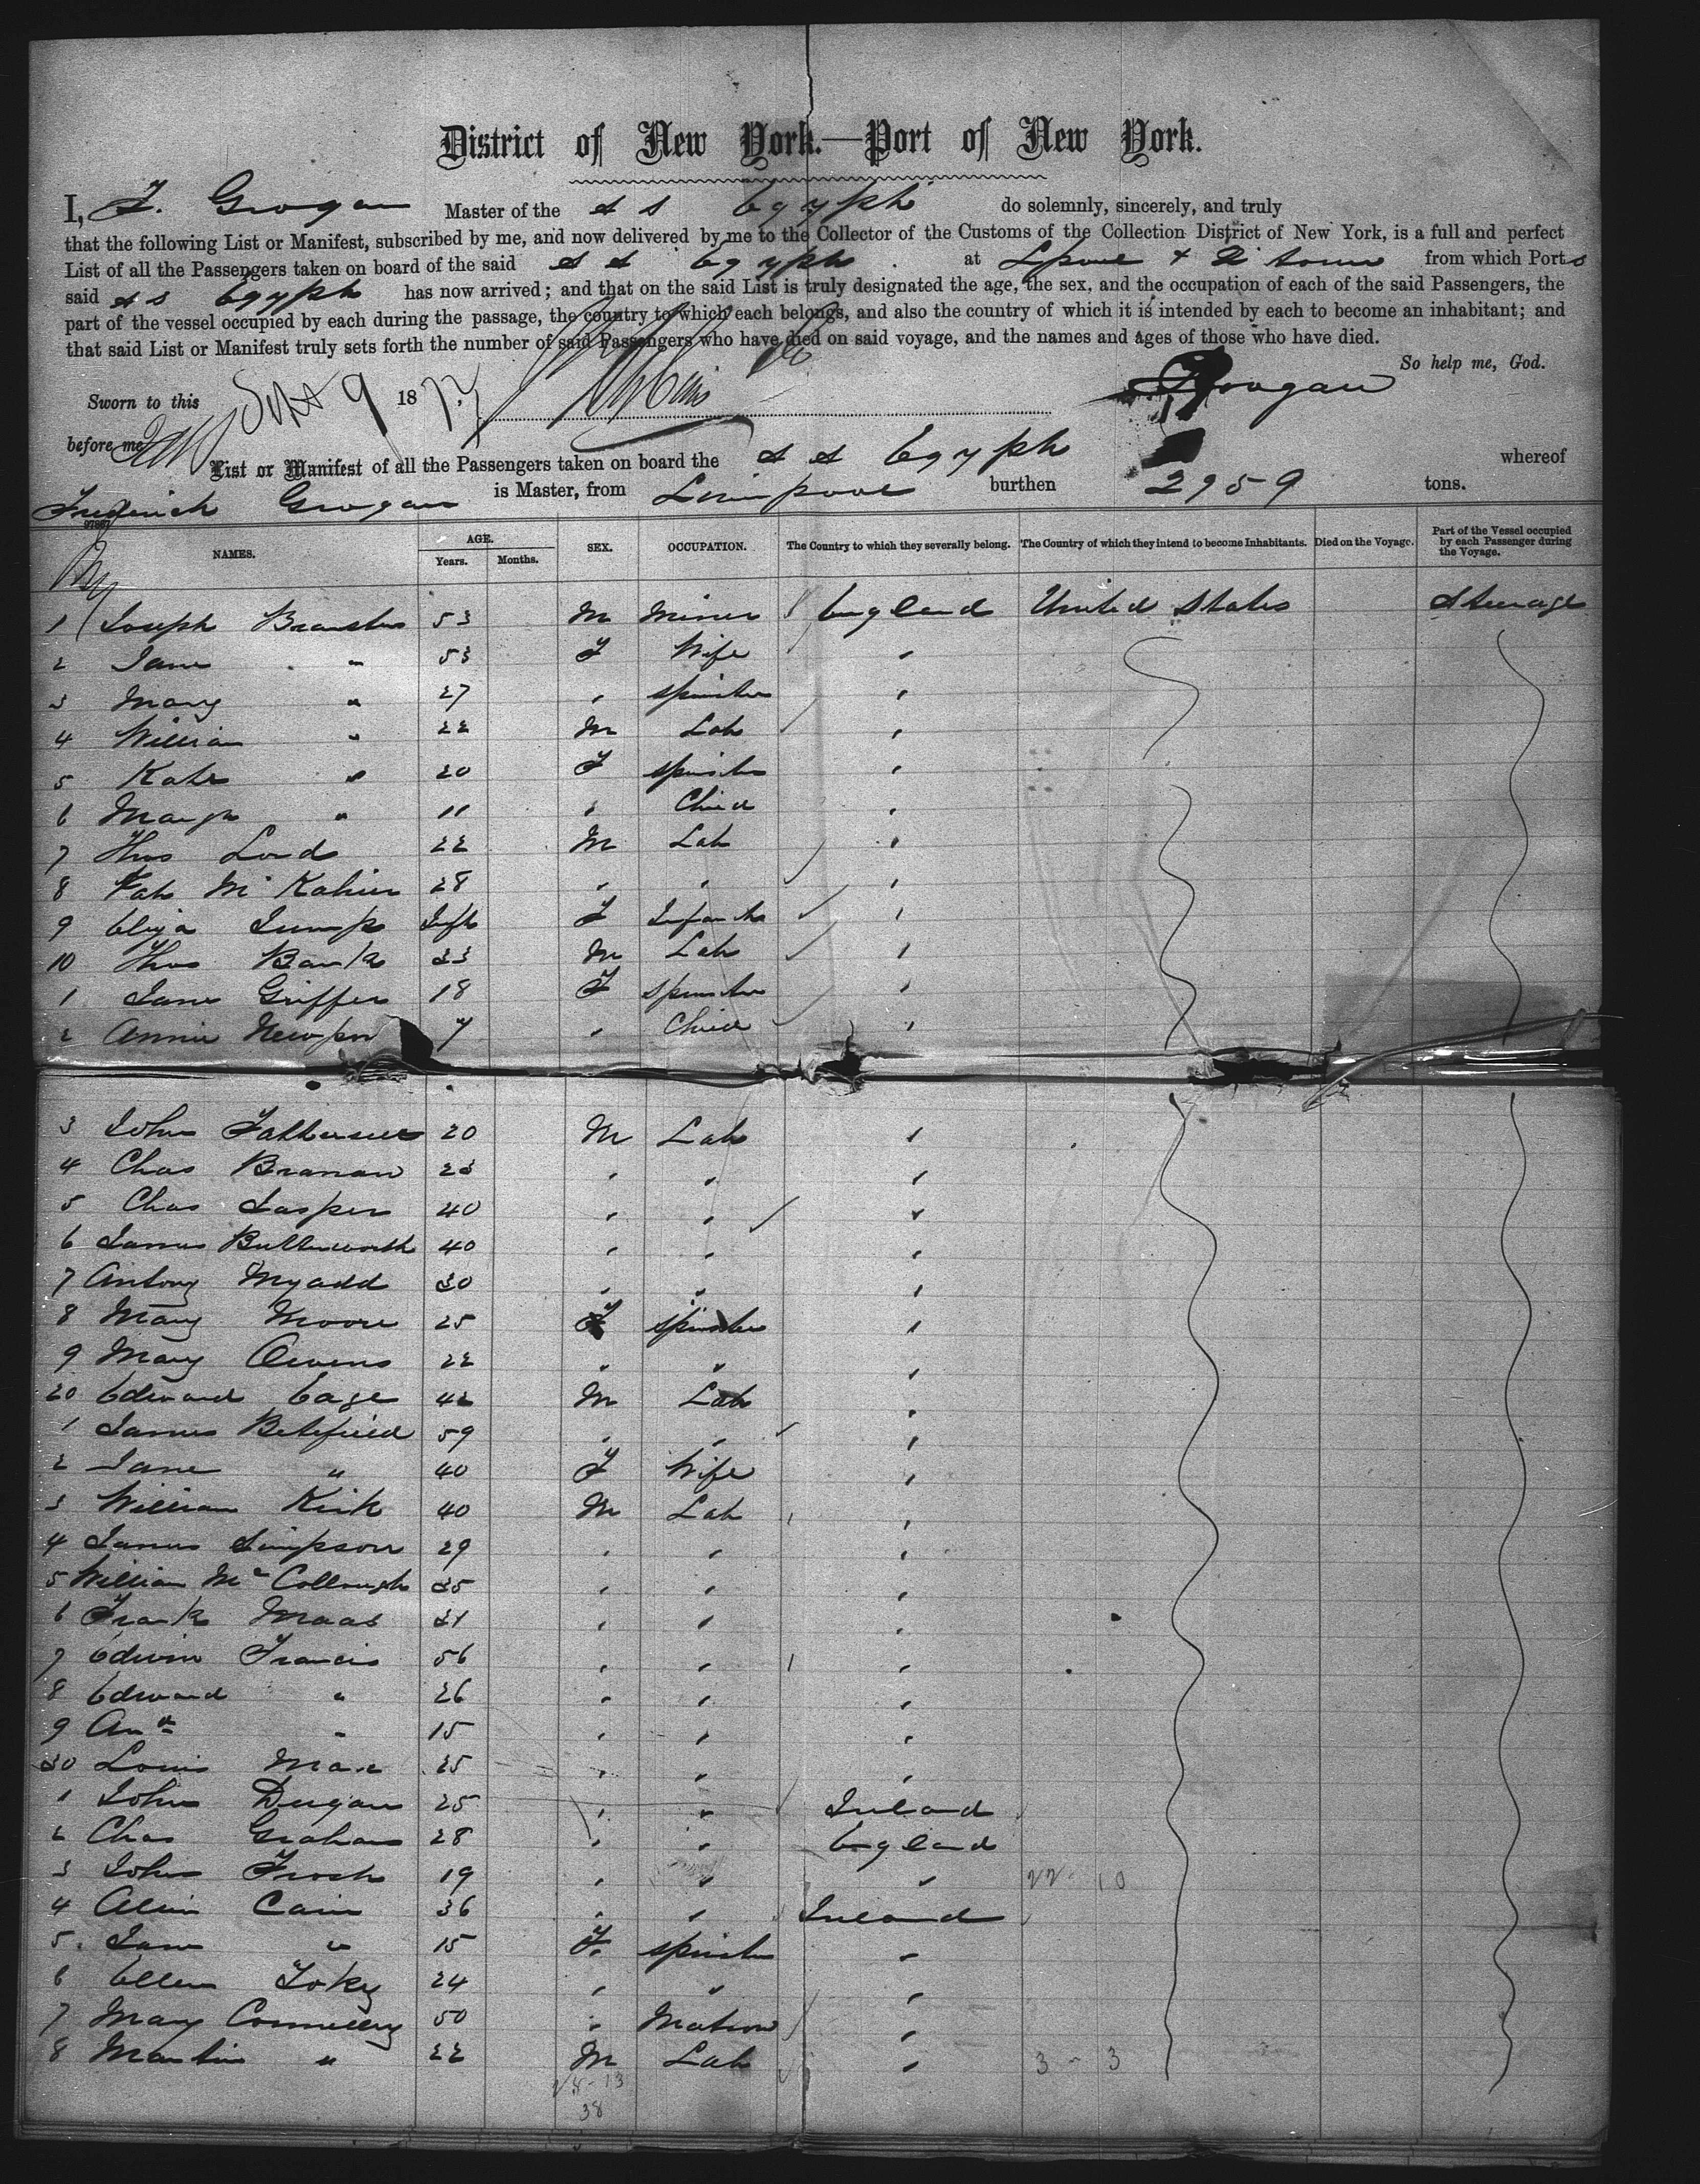 District of New York.—Port of New York.
I, F. Grogan Master of the S S Egypt do solemnly, sincerely, and truly
that the following List or Manifest, subscribed by me, and now delivered by me to the Collector of the Customs of the Collection District of New York, is a full and perfect
List of all the Passengers taken on board of the said S S Egypt at Lpool & Q town from which Ports
said S S Egypt has now arrived; and that on the said List is truly designated the age, the sex, and the occupation of each of the said Passengers, the
part of the vessel occupied by each during the passage, the country to which each belongs, and also the country of which it is intended by each to become an inhabitant; and
that said List or Manifest truly sets forth the number of said Passengers who have died on said voyage, and the names and ages of those who have died.
So help me, God.
Sworn to this Sept 9 1877 Grogan
before me
List or Manifest of all the Passengers taken on board the S S Egypt whereof
Frederick Grogan is Master, from Liverpool burthen 2959 tons.
NAMES. AGE. Years. Months. SEX. OCCUPATION. The Country to which they severally belong. The Country of which they intend to become Inhabitants. Died on the Voyage. Part of the Vessel occupied by each Passenger during the Voyage.
1 Joseph 53 M Miner England United States Steerage
2 Jane " 53 F Wife "
3 Mary " 27 " Spinster "
4 William " 22 M Lab "
5 Kate " 20 F Spinster "
6 Margt " 11 " Child "
7 Thos Lord 22 M Lab "
8 Pat 28 " " "
9 Eliza Jump Inft F Infants "
10 Thos Bank 33 M Lab "
1 Jane 18 F Spinster "
2 Annie 7 " Child "
3 John 20 M Lab "
4 Chas Branan 23 " " "
5 Chas Jasper 40 " " "
6 James Butterworth 40 " " "
7 Antony Myadd 30 " " "
8 Mary Moore 25 F Spinster "
9 Mary Owens 22 " " "
20 Edward Cage 42 M Lab "
1 James Betefield 59 " " "
2 Jane " 40 F Wife "
3 William Kirk 40 M Lab "
4 James Simpson 29 " " "
5 William McCollough 35 " " "
6 Frank Maas 31 " " "
7 Edwin Francis 56 " " "
8 Edward " 26 " " "
9 " 15 " " "
30 Louis 25 " " "
1 John Dugan 25 " " Ireland
2 Chas Graham 28 " " England
3 John Frosh 19 " " " 22-10
4 Cain 36 " " Ireland
5 Jane " 15 F Spinster "
6 Ellen 24 " " "
7 Mary Connelly 50 " Matron "
8 Martin " 22 M Lab " 3-3
38